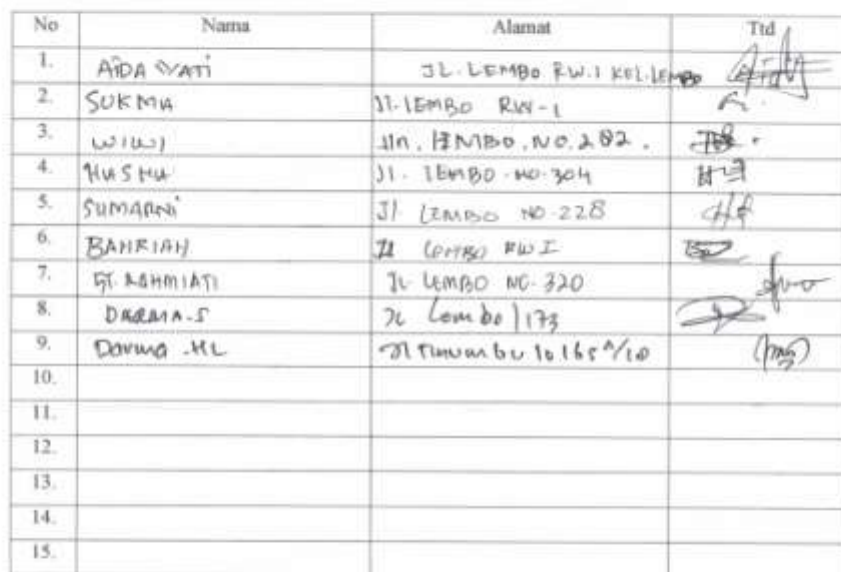 No Nama Alamat Ttd
1. AIDA YATI JL. LEMBO RW.1 KEL.LEMBO
2. SUKMA Jl. LEMBO RW-1
3. WIWI Jln. LEMBO. NO. 282.
4. Jl. LEMBO. NO. 304
5. SUMARNI Jl. LEMBO NO. 228
6. BAHRIAH Jl LEMBO RW I
7. ST. RAHMIATI JL LEMBO NO. 320
8. DARMA.S JL Lembo/173
9. Darma .HL Jl
10.
11.
12.
13.
14.
15.